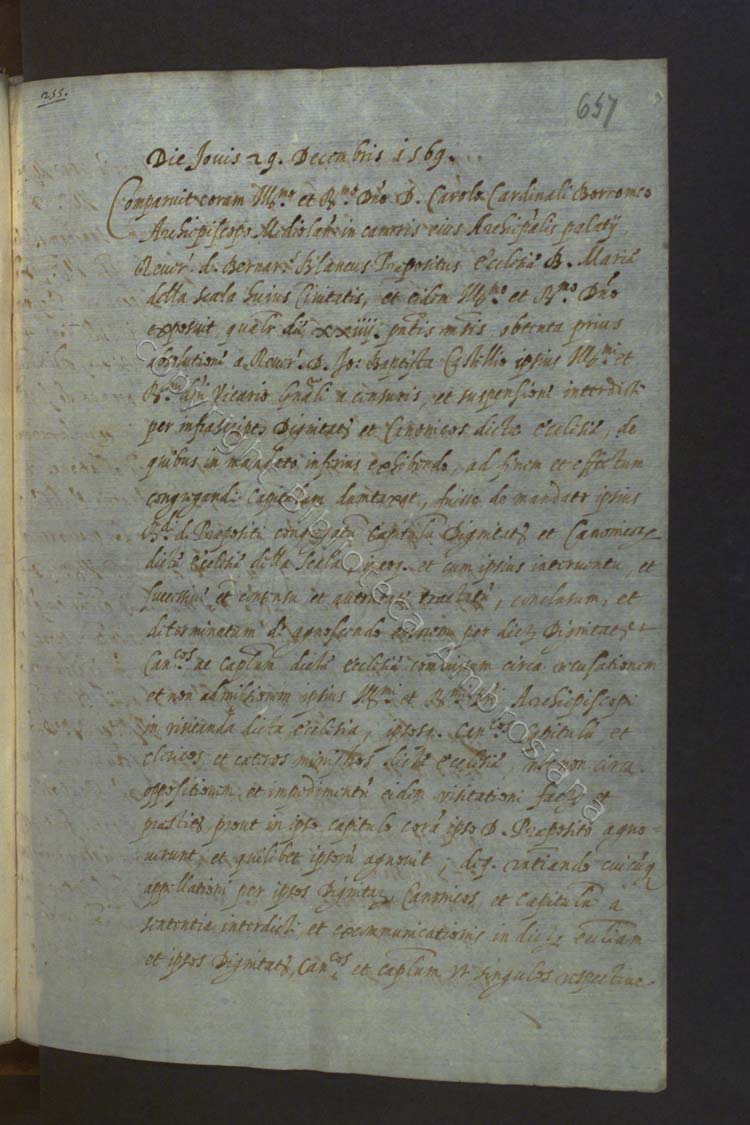 255.
657
Die Jovis 29. Decembris 1569.
Comparuit coram Ill.mo et R.mo D.no D. Carolo Cardinali Borromeo
Archiepiscopo Mediolañ in cameris eius Archiep̃alis palatij
Rever. d. Bernar. Blancus Præpositus ecclesiæ B. Mariæ
della scala huius Civitatis, et eidem Ill.mo et R.mo D.no
exposuit, qualr die xxiiij. pñtis mẽsis obtenta prius
absolutione a Rever. D. Jo: Baptista Castillio ipsius Ill.mi et
Vicario gñali a censuris, et suspensione interdicti
per infrascriptos Dignitates et Canonicos dictæ ecclesiæ, de
quibus in mandato inferius exhibendo, ad finem et effectum
congregandi Capitulum fuisse de mandato ipsius
R.di d. Præpositi congregatũ Capitulũ Dignitatũ et Canonicor
dictæ Ecclesiæ della Scala, et cum ipsius interventu, et
successive et consensu et tractatũ, conclusum, et
determinatum de agnoscendo errorem per dictos Dignitates
Can.cos ac Cap̃lum dictæ ecclesiæ commissum circa recusationem
et non admissionem ipsius Ill.mi et R.mi Archiepiscopi
in visitanda dicta ecclesia, ipsosq. Can.cos Capitulũ et
clericos, et cæteros ministros dictæ ecclesiæ, nec non circa
oppositionem et impedimentũ eidem visitationi factũ et
præstitũ prout in ipso capitulo corã ipso D. Præposito agno=
verunt, et quilibet ipsorũ agnovit; deq. renũtiando cuicũq
appellationi per ipsos Dignitates, Canonicos et Capitulũ a
sententia interdicti et excommunicationis in dictã eccliam
et ipsos Dignitates, Can.cos et cap̃lum ut singulos respective
Copyright Biblioteca Ambrosiana